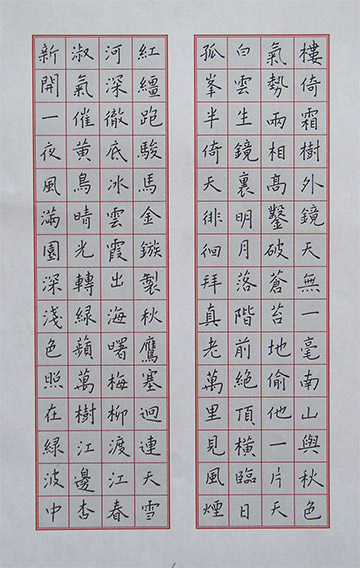 樓倚霜樹外鏡天無一毫南山與秋色
氣勢兩相高鑿破蒼苔地偷他一片天
白雲生鏡裏明月落階前絕頂橫臨日
孤峯半倚天徘徊拜真老萬里見風煙
紅繮跑駿馬金鏃製秋鷹塞迴連天雪
河深徹底冰雲霞出海曙梅柳渡江春
淑氣催黃鳥晴光轉綠蘋萬樹江邊杏
新開一夜風滿園深淺色照在綠波中